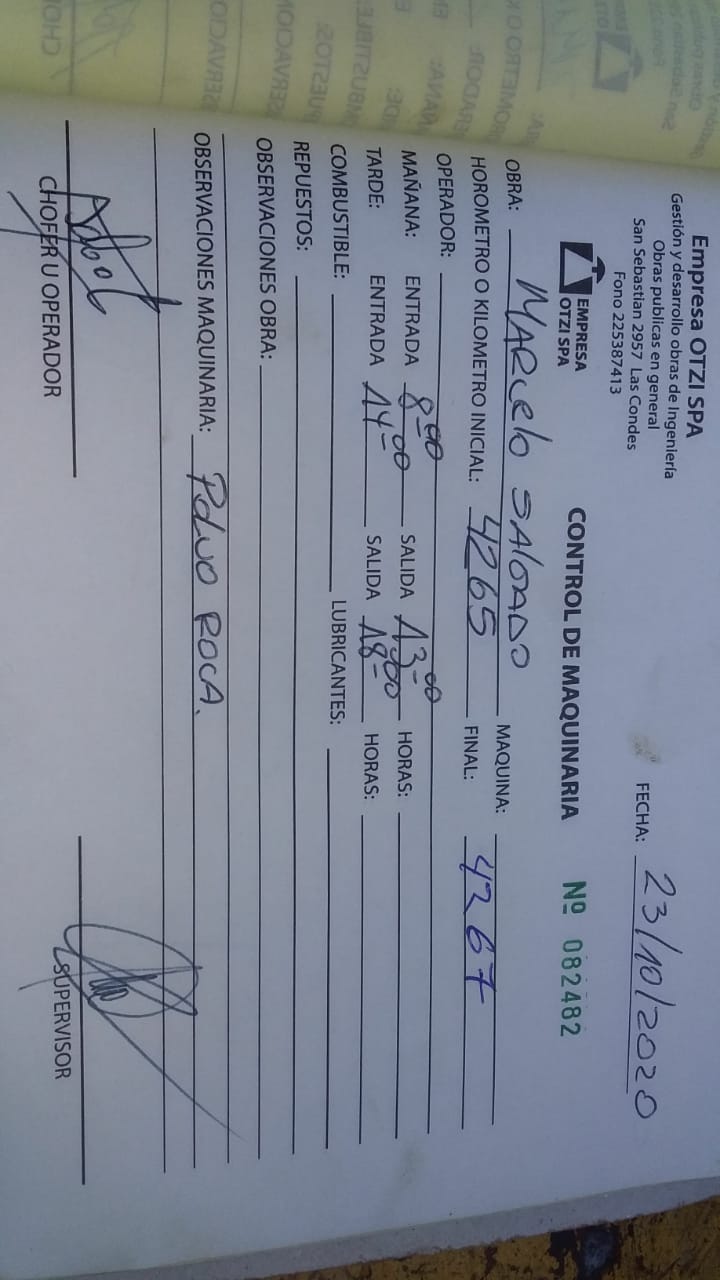 Empresa OTZI SPA
Gestión y desarrollo obras de Ingeniería
Obras publicas en general
San Sebastian 2957 Las Condes
Fono 225387413
FECHA: 23/10/2020
EMPRESA
OTZI SPA
CONTROL DE MAQUINARIA Nº 082482
OBRA: MARCelo SALGADO MAQUINA:
HOROMETRO O KILOMETRO INICIAL: 4265 FINAL: 4267
OPERADOR:
MAÑANA: ENTRADA 8=00 SALIDA 13=00 HORAS:
TARDE: ENTRADA 14=00 SALIDA 18=00 HORAS:
COMBUSTIBLE: LUBRICANTES:
REPUESTOS:
OBSERVACIONES OBRA:
OBSERVACIONES MAQUINARIA: POLVO ROCA.
CHOFER U OPERADOR SUPERVISOR